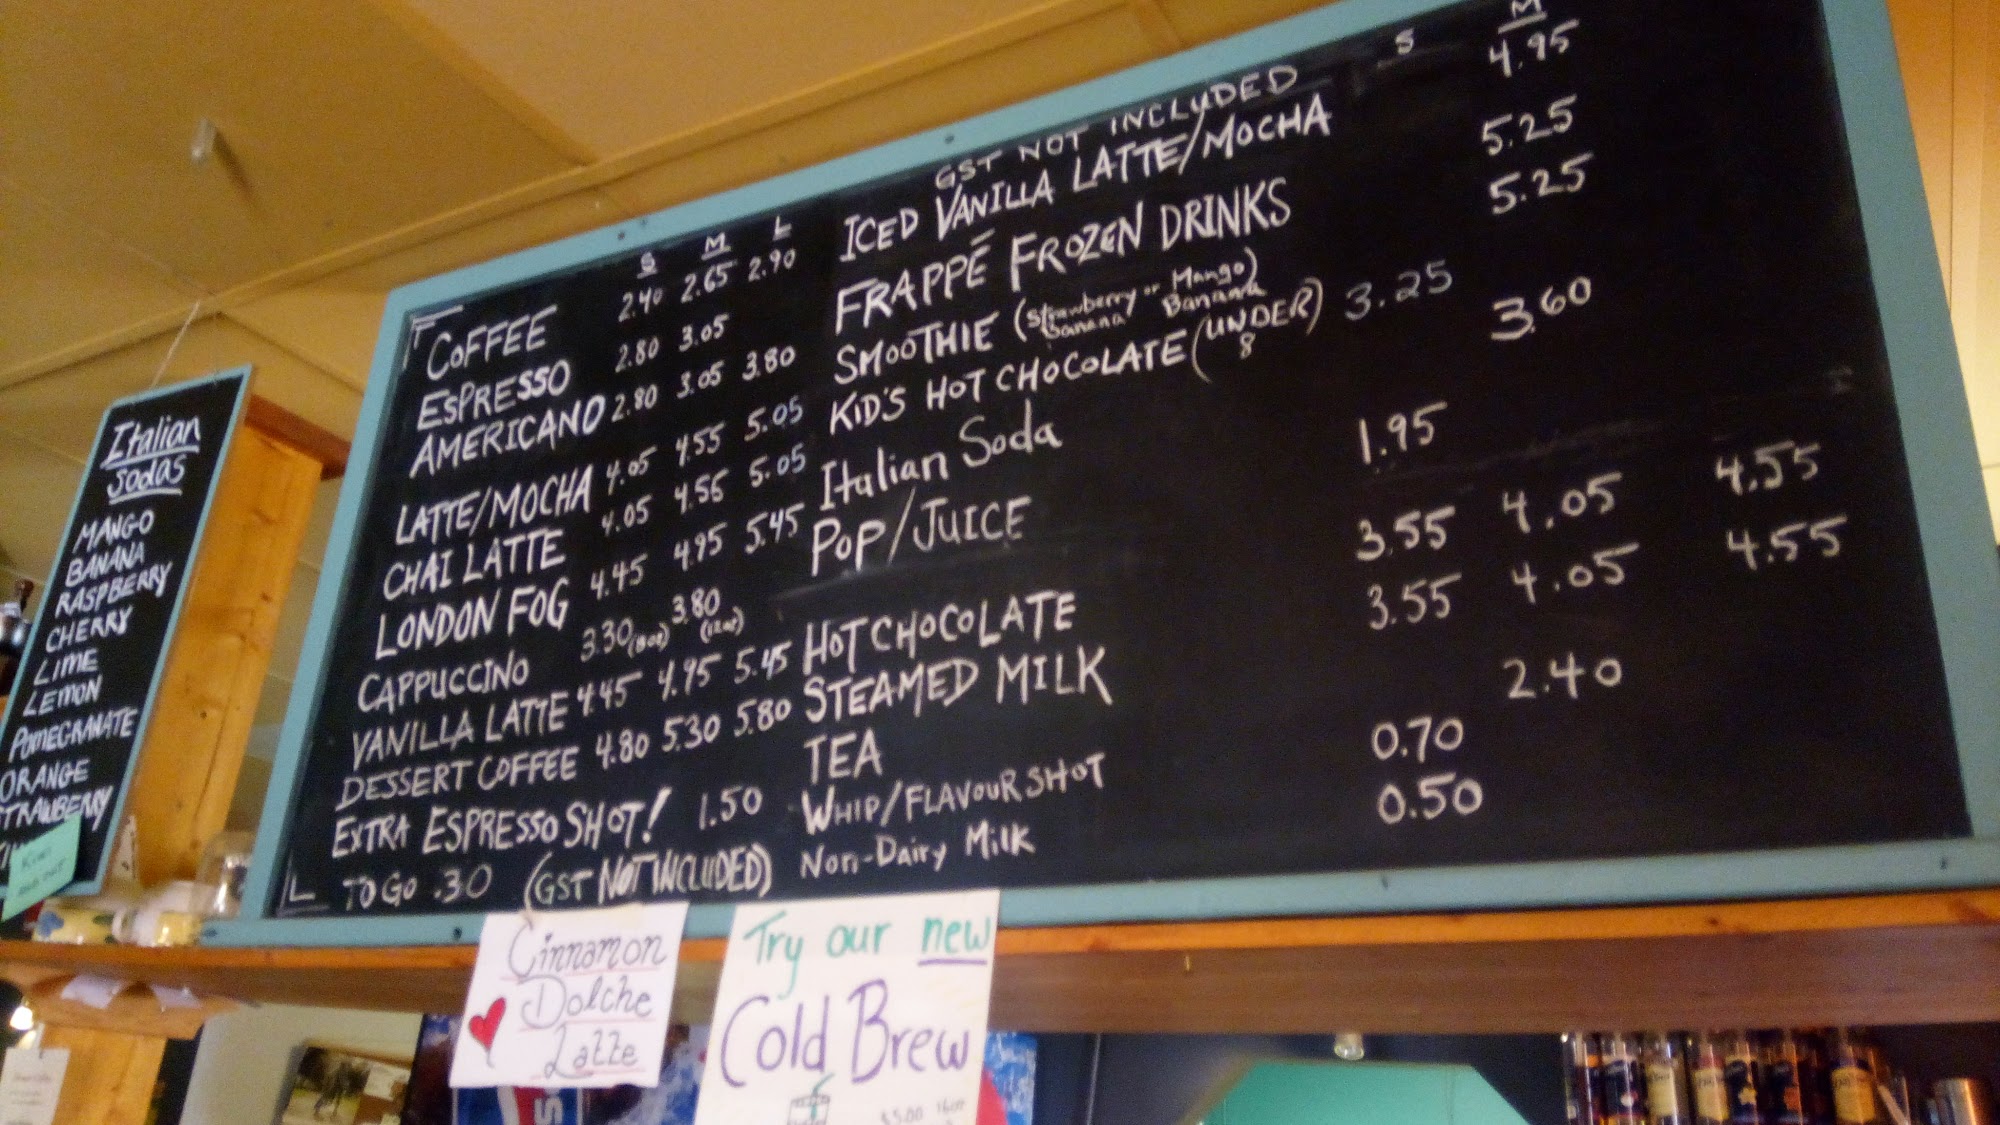 Italian
Sodas
MANGO
BANANA
RASPBERRY
CHERRY
LIME
LEMON
POMEGRANATE
ORANGE
STRAWBERRY
S M L
COFFEE 2.40 2.65 2.90
ESPRESSO 2.80 3.05
AMERICANO 2.80 3.05 3.80
LATTE/MOCHA 4.05 4.55 5.05
CHAI LATTE 4.05 4.55 5.05
LONDON FOG 4.45 4.95 5.45
CAPPUCCINO 3.30 (8oz) 3.80 (12oz)
VANILLA LATTE 4.45 4.95 5.45
DESSERT COFFEE 4.80 5.30 5.80
EXTRA ESPRESSO SHOT! 1.50
TO GO .30 (GST NOT INCLUDED)
GST NOT INCLUDED S M
ICED VANILLA LATTE/MOCHA 4.95
FRAPPÉ FROZEN DRINKS 5.25
SMOOTHIE (Strawberry or Mango) 5.25
Banana Banana
KID'S HOT CHOCOLATE (UNDER) 3.25
8
Italian Soda 3.60
POP/JUICE 1.95
HOT CHOCOLATE 3.55 4.05 4.55
STEAMED MILK 3.55 4.05 4.55
TEA 2.40
WHIP/FLAVOUR SHOT 0.70
Non-Dairy Milk 0.50
Cinnamon
Dolche
Latte
Try our new
Cold Brew
$5.00 16oz